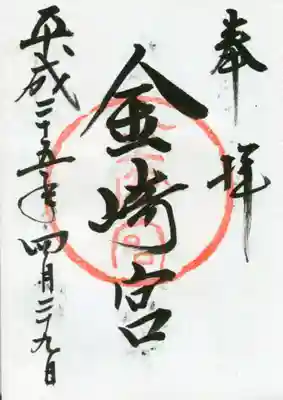 奉拝
金崎宮
平成二十五年四月二十九日